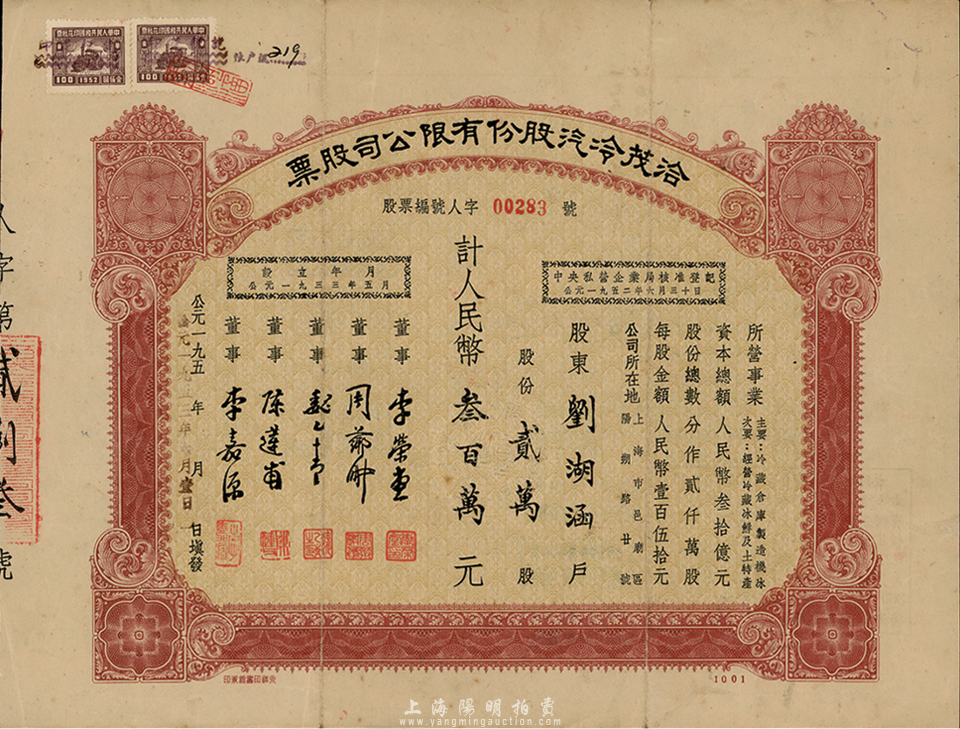 中華人民共和國印花稅票
100
1952
中華人民共和國印花稅票
100
1952
219
洽茂冷汽股份有限公司股票
股票編號人字 00283 號
中央私營企業局核准登記
公元一九五二年六月三十日
設立年月
公元一九三三年五月
所營事業
主要：冷藏倉庫製造機冰
次要：經營冷藏冰鮮及土特產
資本總額 人民幣叁拾億元
股份總數 分作貳仟萬股
每股金額 人民幣壹百伍拾元
公司所在地 上海市邑廟區
陽朔路廿號
股東 劉湖涵 戶
股份 貳萬 股
計人民幣 叁百萬 元
董事 李榮
董事 周
董事
董事 陳蓮甫
董事 李嘉源
公元一九五 年 月 日填發
字第
貳
叁
號
1001
上海陽明拍賣
www.yangmingauction.com